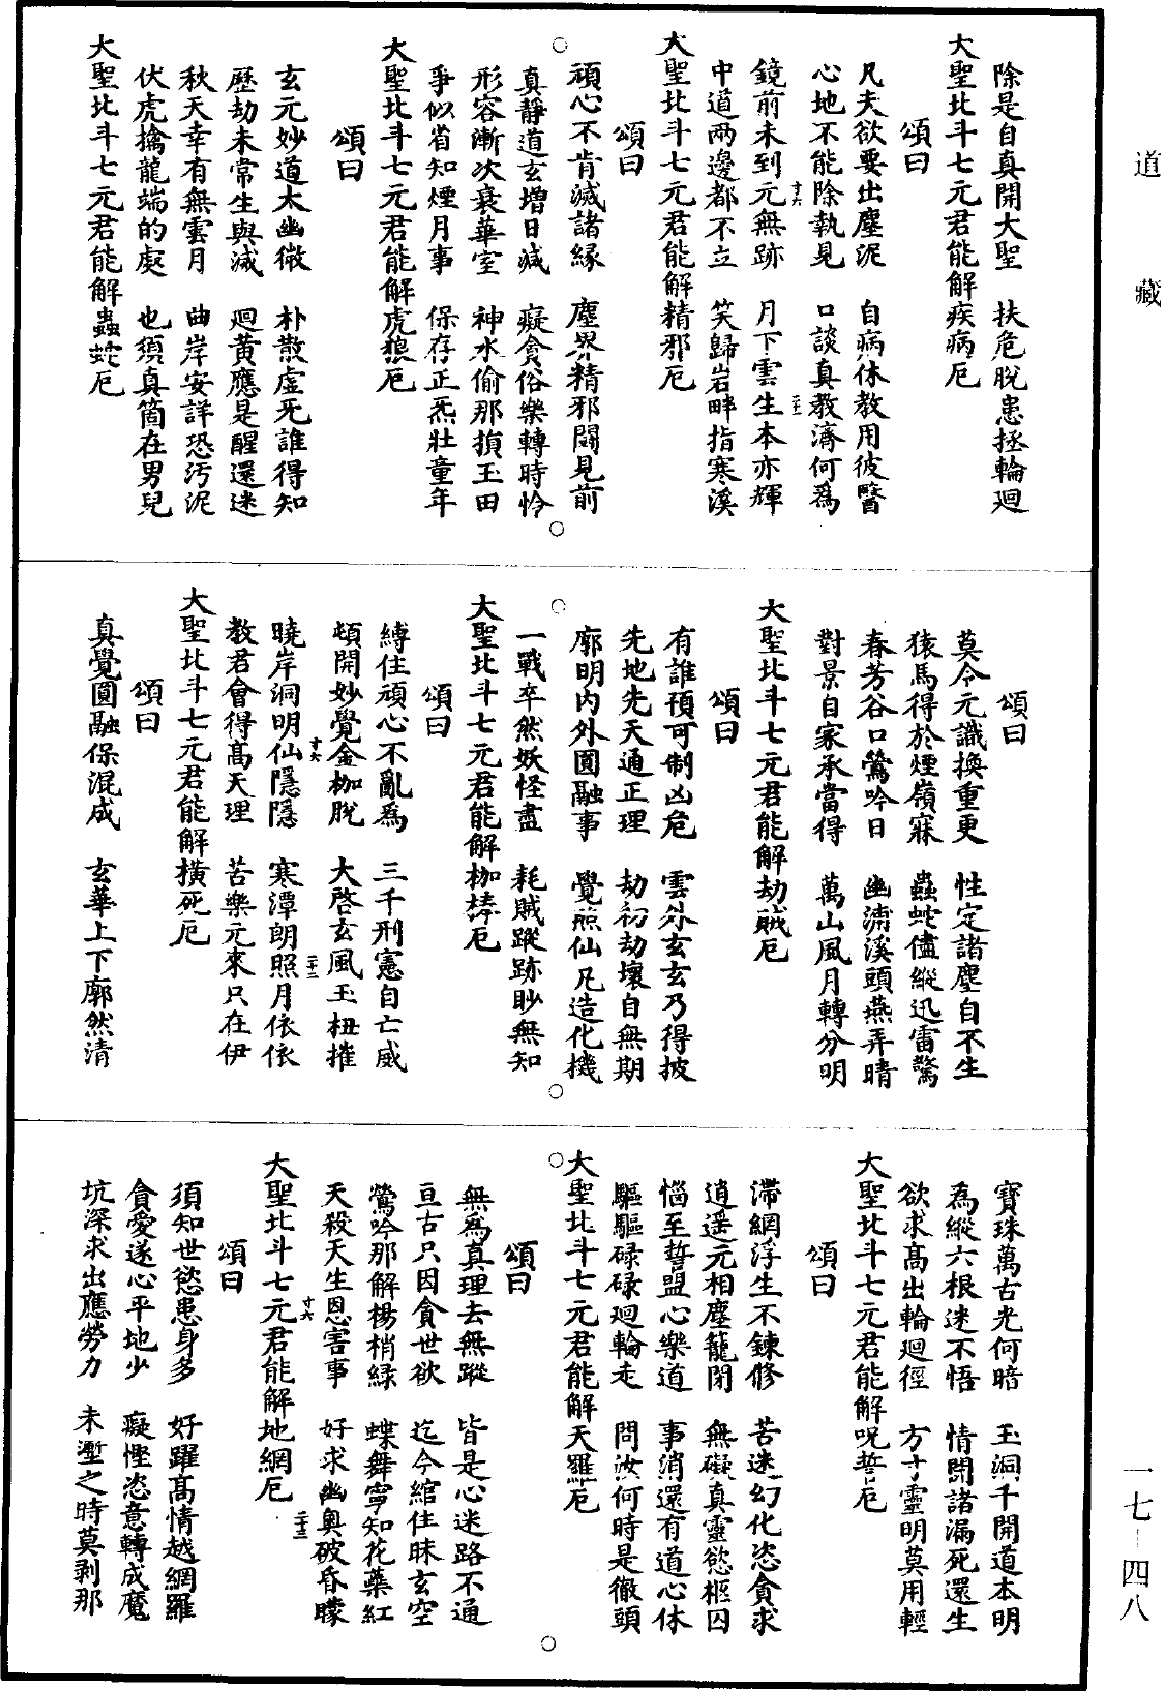 道藏
除是自真開大聖　扶危脫患拯輪迴
大聖北斗七元君能解疾病厄
頌曰
凡夫欲要出塵泥　自病休教用彼醫
心地不能除執見　口談真教濟何爲
十六　二十一
鏡前未到元無跡　月下雲生本亦輝
中道兩邊都不立　笑歸岩畔指寒溪
大聖北斗七元君能解精邪厄
頌曰
頑心不肯滅諸緣　塵界精邪鬪見前
真靜道玄增日減　癡貪俗樂轉時怜
形容漸次衰華室　神水偷那損玉田
爭似省知煙月事　保存正炁壯童年
大聖北斗七元君能解虎狼厄
頌曰
玄元妙道太幽微　朴散虛死誰得知
歷劫未常生與滅　迴黃應是醒還迷
秋天幸有無雲月　曲岸安詳恐汚泥
伏虎擒龍端的處　也須真箇在男兒
大聖北斗七元君能解蟲蛇厄
頌曰
莫令元識換重更　性定諸塵自不生
猿馬得於煙嶺寐　蟲蛇儘縱迅雷驚
春芳谷口鶯吟日　幽淸溪頭燕弄晴
對景自家承當得　萬山風月轉分明
大聖北斗七元君能解劫賊厄
頌曰
有誰預可制凶危　雲外玄玄乃得披
先地先天通正理　劫初劫壞自無期
廓明內外圓融事　覺照仙凡造化機
一戰卒然妖怪盡　耗賊蹤跡眇無知
大聖北斗七元君能解枷棒厄
頌曰
縛住頑心不亂爲　三千刑憲自亡威
頓開妙覺金枷脫　大啓玄風玉杻摧
十六　二十二
曉岸洞明仙隱隱　寒潭朗照月依依
教君會得高天理　苦樂元來只在伊
大聖北斗七元君能解橫死厄
頌曰
真覺圓融保混成　玄華上下廓然清
寶珠萬古光何暗　玉洞千開道本明
爲縱六根迷不悟　情閉諸漏死還生
欲求高出輪迴徑　方寸靈明莫用輕
大聖北斗七元君能解呪誓厄
頌曰
滯網浮生不鍊修　苦迷幻化恣貪求
逍遥元相塵籠閉　無礙真靈慾柩囚
惱至誓盟心樂道　事消還有道心休
驅驅碌碌迴輪走　問汝何時是徹頭
大聖北斗七元君能解天羅厄
頌曰
無爲真理去無蹤　皆是心迷路不通
亘古只因貪世欲　迄今綰住昧玄空
鶯吟那解楊梢綠　蝶舞寧知花藥紅
天殺天生恩害事　好求幽奧破昏矇
十六　二十三
大聖北斗七元君能解地網厄
頌曰
須知世慾患身多　好躍高情越網羅
貪愛遂心平地少　癡慳恣意轉成魔
坑深求出應勞力　未塹之時莫剥那
一七—四八